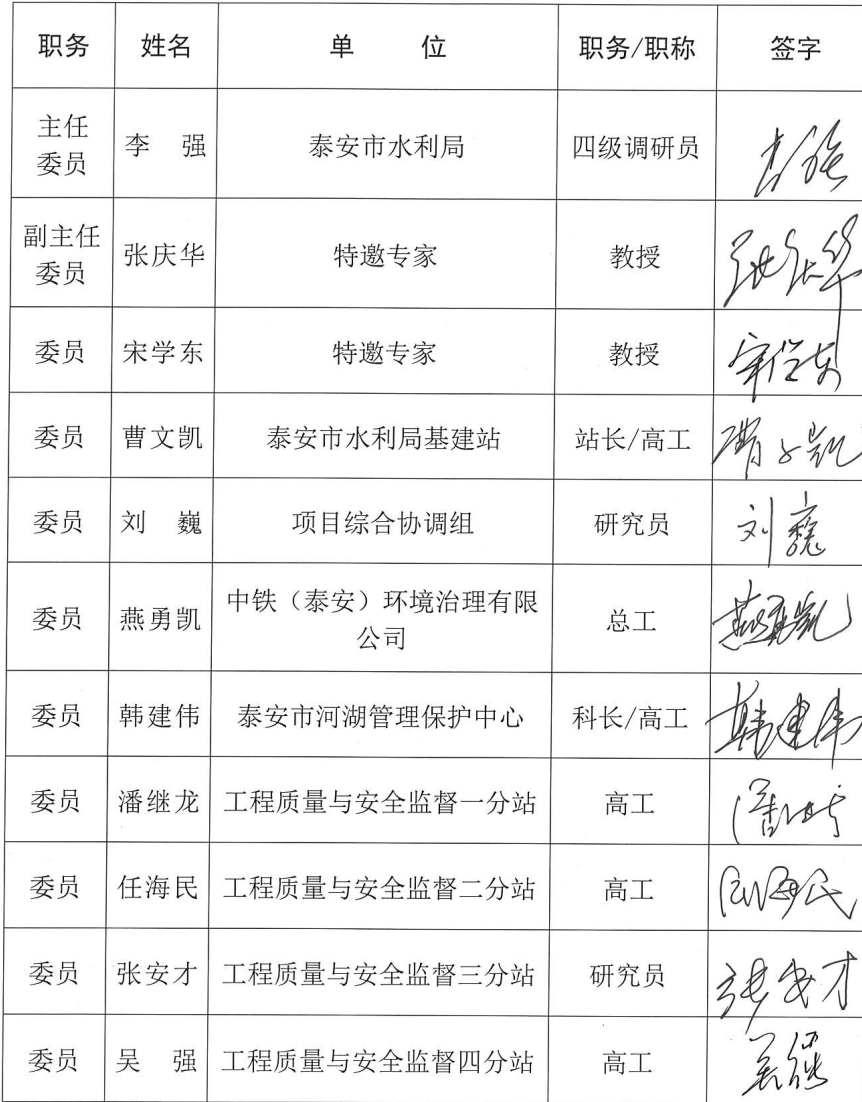 职务 姓名 单 位 职务/职称 签字
主任
委员 李 强 泰安市水利局 四级调研员 李强
副主任
委员 张庆华 特邀专家 教授 张庆华
委员 宋学东 特邀专家 教授
委员 曹文凯 泰安市水利局基建站 站长/高工 曹文凯
委员 刘 巍 项目综合协调组 研究员 刘巍
委员 燕勇凯 中铁（泰安）环境治理有限
公司 总工 燕勇凯
委员 韩建伟 泰安市河湖管理保护中心 科长/高工 韩建伟
委员 潘继龙 工程质量与安全监督一分站 高工
委员 任海民 工程质量与安全监督二分站 高工 任海民
委员 张安才 工程质量与安全监督三分站 研究员 张安才
委员 吴 强 工程质量与安全监督四分站 高工 吴强